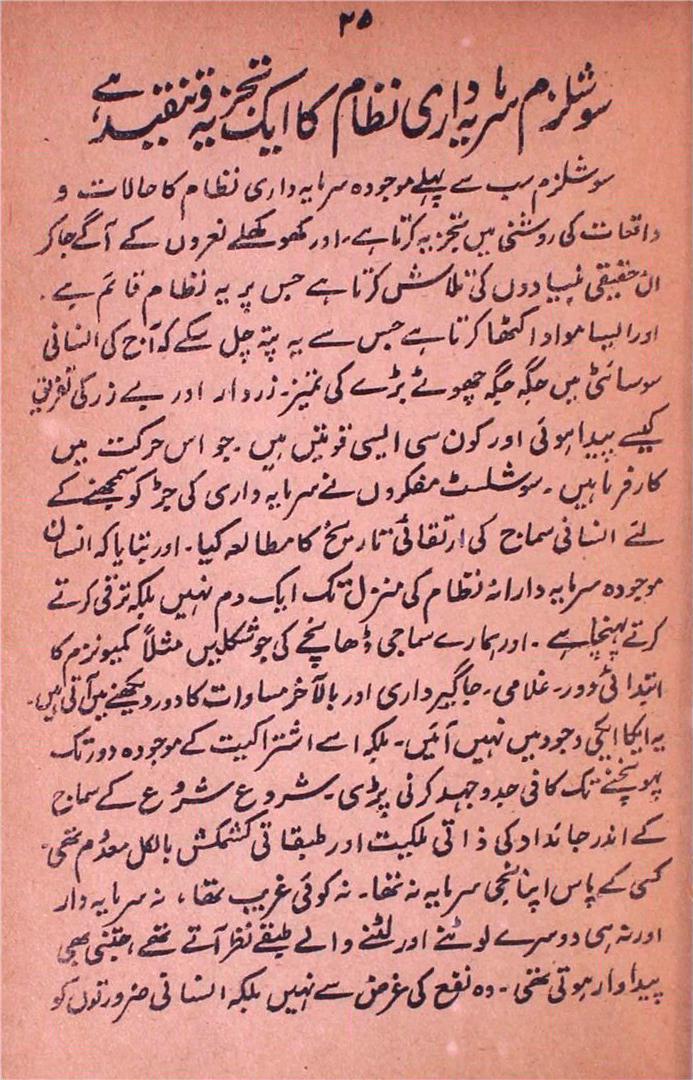 ۲۵
سوشلزم سرمایہ داری نظام کا ایک تجزیہ و تنقید ہے
سوشلزم سب سے پہلے موجودہ سرمایہ داری نظام کا حالات و
واقعات کی روشنی میں تجزیہ کرتا ہے۔ اور کھوکھلے نعروں کے آگے جا کر
ان حقیقی بنیادوں کی تلاش کرتا ہے جس پر یہ نظام قائم ہے۔
اور ایسا مواد اکٹھا کرتا ہے جس سے یہ پتہ چل سکے کہ آج کی انسانی
سوسائٹی میں جگہ جگہ چھوٹے بڑے کی تمیز۔ زردار اور بے زر کی تفریق
کیسے پیدا ہوئی اور کون سی ایسی قوتیں ہیں۔ جو اس حرکت میں
کارفرما ہیں۔ سوشلسٹ مفکروں نے سرمایہ داری کی جڑ کو سمجھنے کے
لئے انسانی سماج کی ارتقائی تاریخ کا مطالعہ کیا۔ اور بتایا کہ انسان
موجودہ سرمایہ دارانہ نظام کی منزل تک ایک دم نہیں بلکہ ترقی کرتے
کرتے پہنچا ہے۔ اور ہمارے سماجی ڈھانچے کی جو شکلیں مثلاً کمیونزم کا
ابتدائی دور۔ غلامی۔ جاگیرداری اور بالآخر مساوات کا دور دیکھنے میں آتی ہیں۔
یہ ایکا ایکی وجود میں نہیں آئیں۔ بلکہ اسے اشتراکیت کے موجودہ دور تک
پہونچنے تک کافی جدوجہد کرنی پڑی۔ شروع شروع کے سماج
کے اندر جائداد کی ذاتی ملکیت اور طبقاتی کشمکش بالکل معدوم تھی۔
کسی کے پاس اپنا نجی سرمایہ نہ تھا۔ نہ کوئی غریب تھا، نہ سرمایہ دار
اور نہ ہی دوسرے لوٹنے اور لٹنے والے طبقے نظر آتے تھے، جتنی بھی
پیداوار ہوتی تھی۔ وہ نفع کی غرض سے نہیں بلکہ انسانی ضرورتوں کو